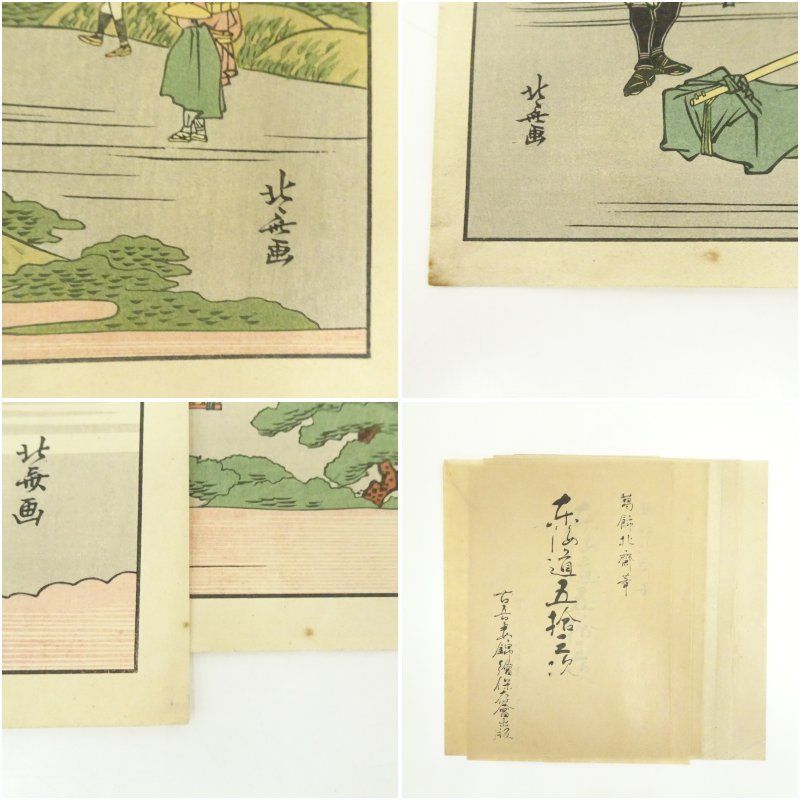 北斎画
北斎画
北斎画
葛飾北齋筆
東海道五拾三次
古吾妻錦繪保存會出版